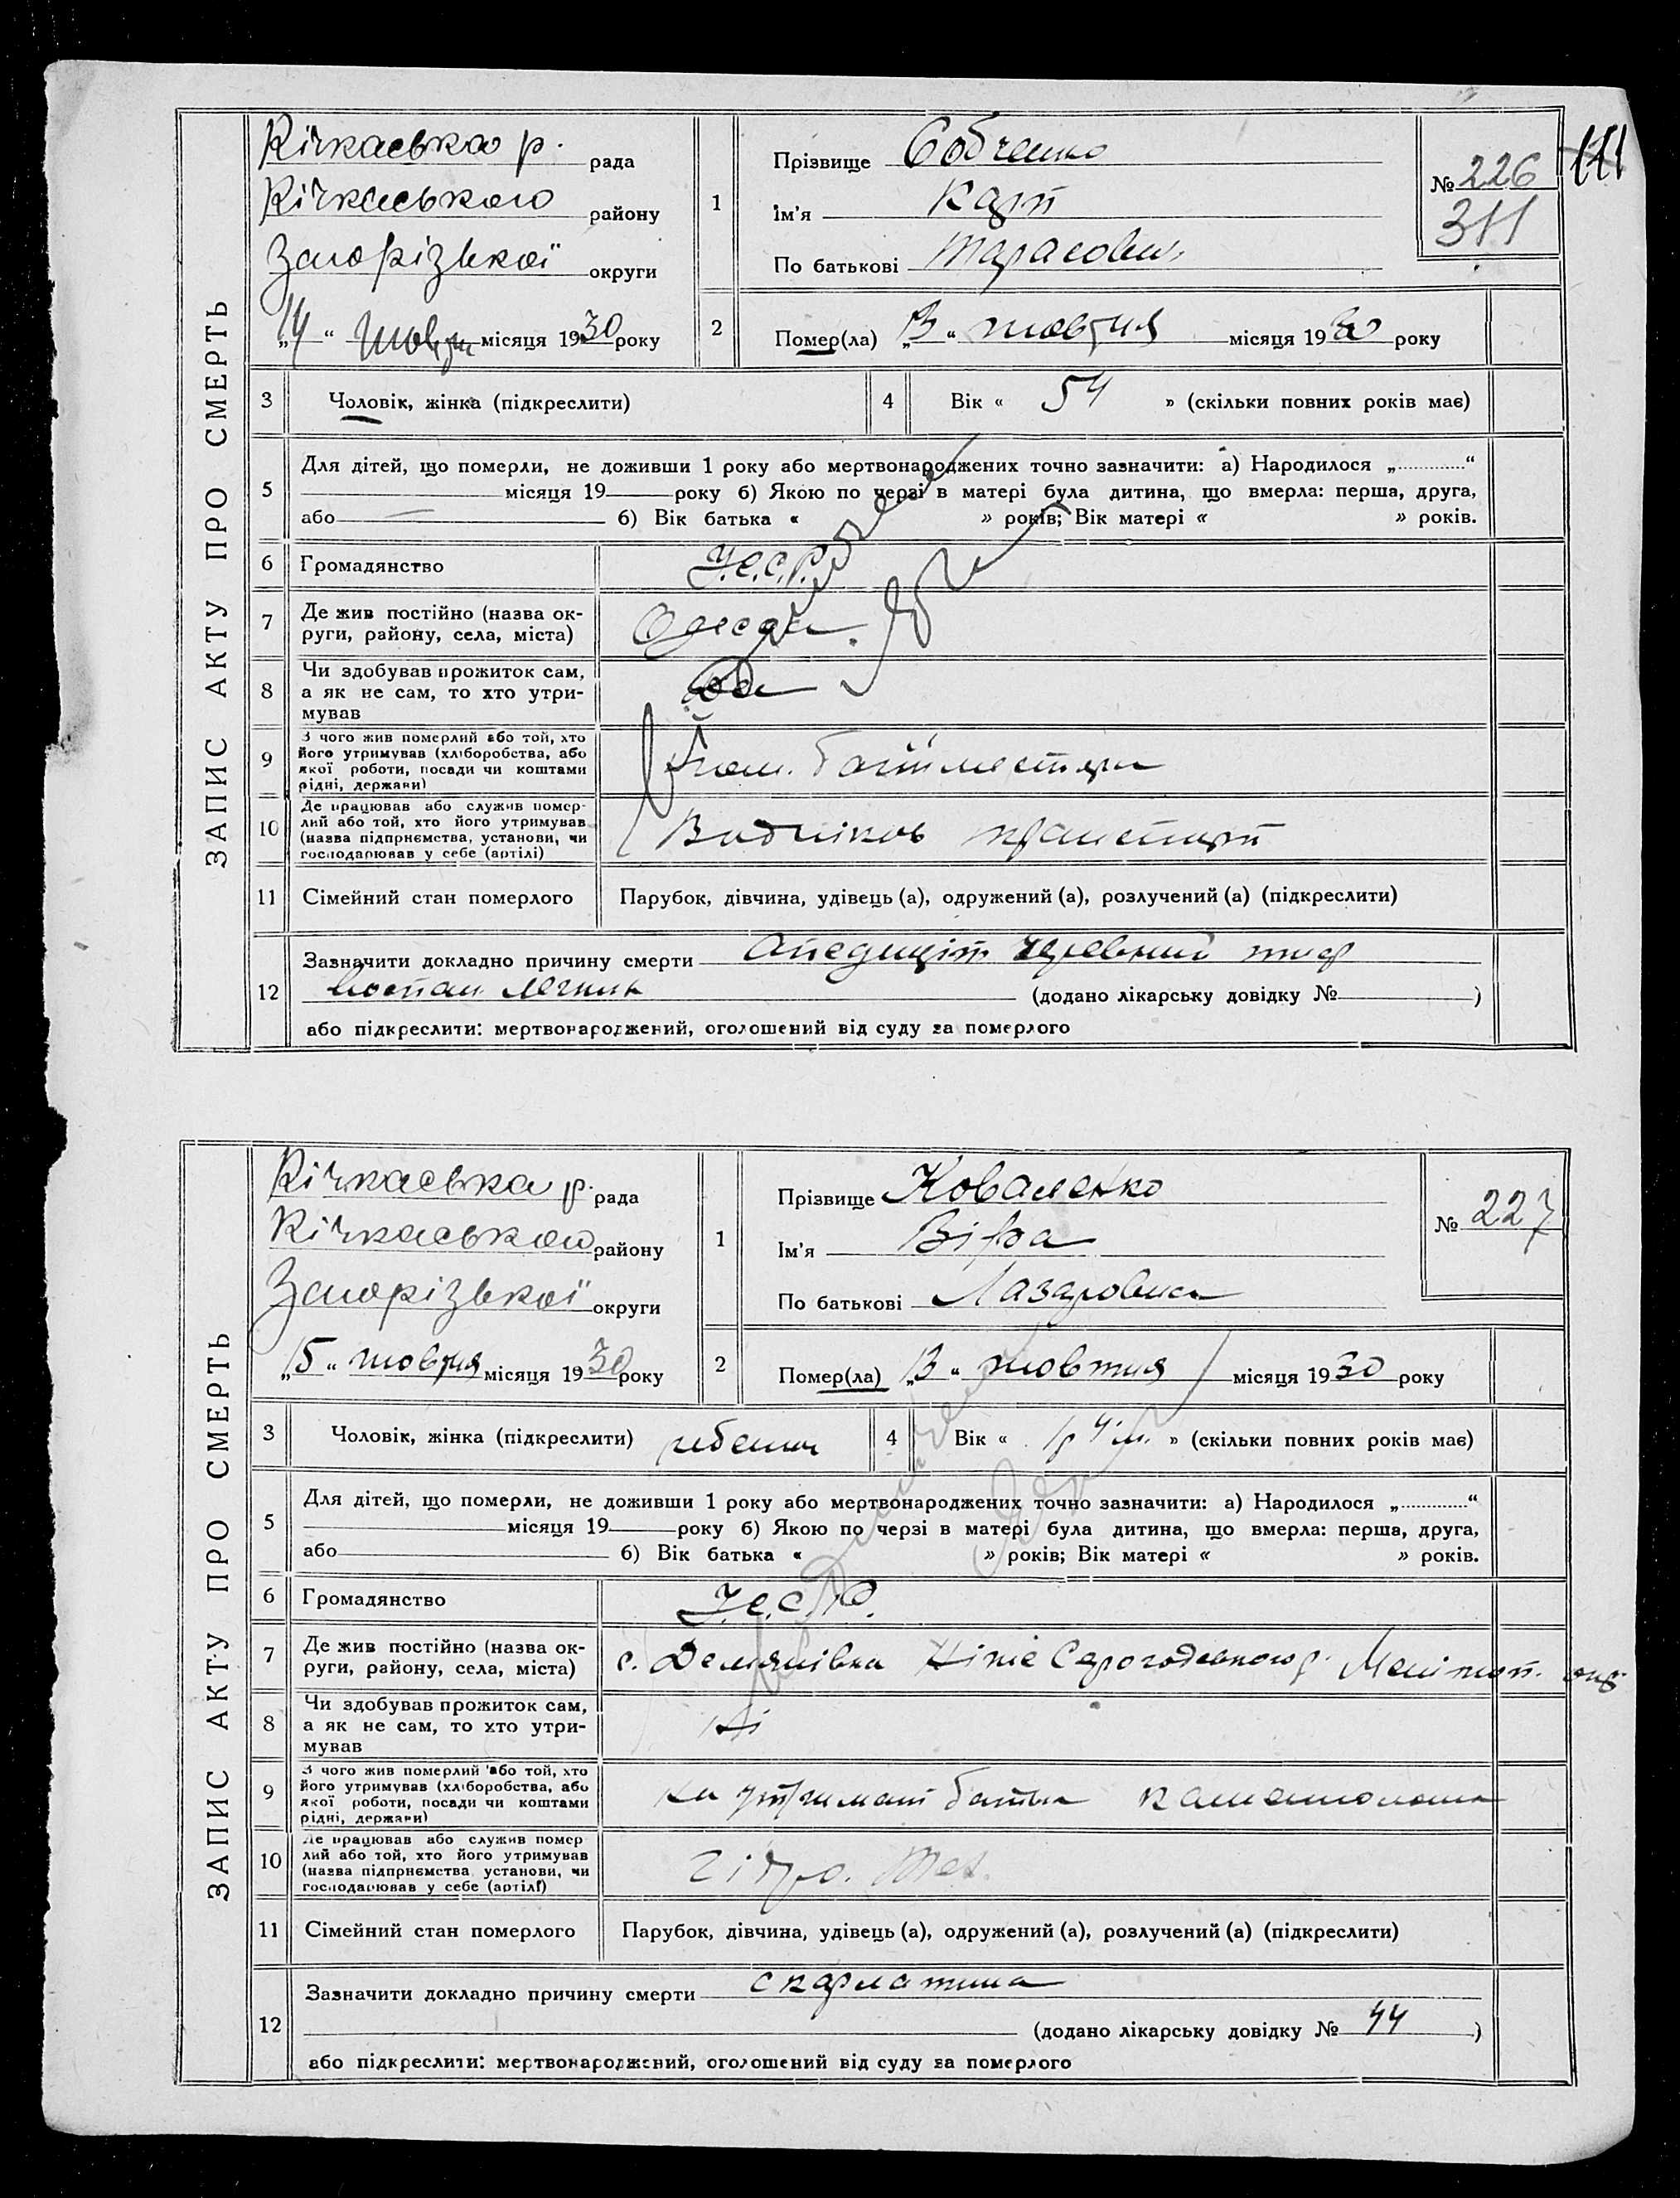 ЗАПИС АКТУ ПРО СМЕРТЬ
Кічкаська р. рада
Кічкаського району
Запорізької округи
„14“ жовтн місяця 1930 року
1
Прізвище Собченко
Ім'я Карп
По батькові Тарасович
№ 226
311
2
Помер(ла) „13“ жовтня місяця 1930 року
3
Чоловік, жінка (підкреслити)
4
Вік « 54 » (скільки повних років має)
5
Для дітей, що померли, не доживши 1 року або мертвонароджених точно зазначити: а) Народилося „ “
місяця 19 року б) Якою по черзі в матері була дитина, що вмерла: перша, друга,
або б) Вік батька « » років; Вік матері « » років.
6
Громадянство
У.С.С.Р.
7
Де жив постійно (назва ок-
руги, району, села, міста)
Одеса
8
Чи здобував прожиток сам,
а як не сам, то хто утри-
мував
9
З чого жив померлий або той, хто
його утримував (хліборобства, або
якої роботи, посади чи коштами
рідні, держави)
10
Де працював або служив помер-
лий або той, хто його утримував
(назва підприємства, установи, чи
господарював у себе (артілі)
транспорт
11
Сімейний стан померлого
Парубок, дівчина, удівець (а), одружений (а), розлучений (а) (підкреслити)
12
Зазначити докладно причину смерти Апедицит черевний тиф
(додано лікарську довідку № )
або підкреслити: мертвонароджений, оголошений від суду за померлого
ЗАПИС АКТУ ПРО СМЕРТЬ
Кічкаська р. рада
Кічкаського району
Запорізької округи
„15“ жовтня місяця 1930 року
1
Прізвище Коваленко
Ім'я Віра
По батькові Лазаровна
№ 227
2
Помер(ла) „13“ жовтня місяця 1930 року
3
Чоловік, жінка (підкреслити)
4
Вік « 1 р 4 м. » (скільки повних років має)
5
Для дітей, що померли, не доживши 1 року або мертвонароджених точно зазначити: а) Народилося „ “
місяця 19 року б) Якою по черзі в матері була дитина, що вмерла: перша, друга,
або б) Вік батька « » років; Вік матері « » років.
6
Громадянство
У.С.С.Р.
7
Де жив постійно (назва ок-
руги, району, села, міста)
с. Демянівка Ніже Серогодського р. Меліт. окр
8
Чи здобував прожиток сам,
а як не сам, то хто утри-
мував
Ні
9
З чого жив померлий або той, хто
його утримував (хліборобства, або
якої роботи, посади чи коштами
рідні, держави)
на утриман батька каменолома
10
Де працював або служив помер-
лий або той, хто його утримував
(назва підприємства, установи, чи
господарював у себе (артілі)
Гідро.
11
Сімейний стан померлого
Парубок, дівчина, удівець (а), одружений (а), розлучений (а) (підкреслити)
12
Зазначити докладно причину смерти скарлатина
(додано лікарську довідку № 44 )
або підкреслити: мертвонароджений, оголошений від суду за померлого